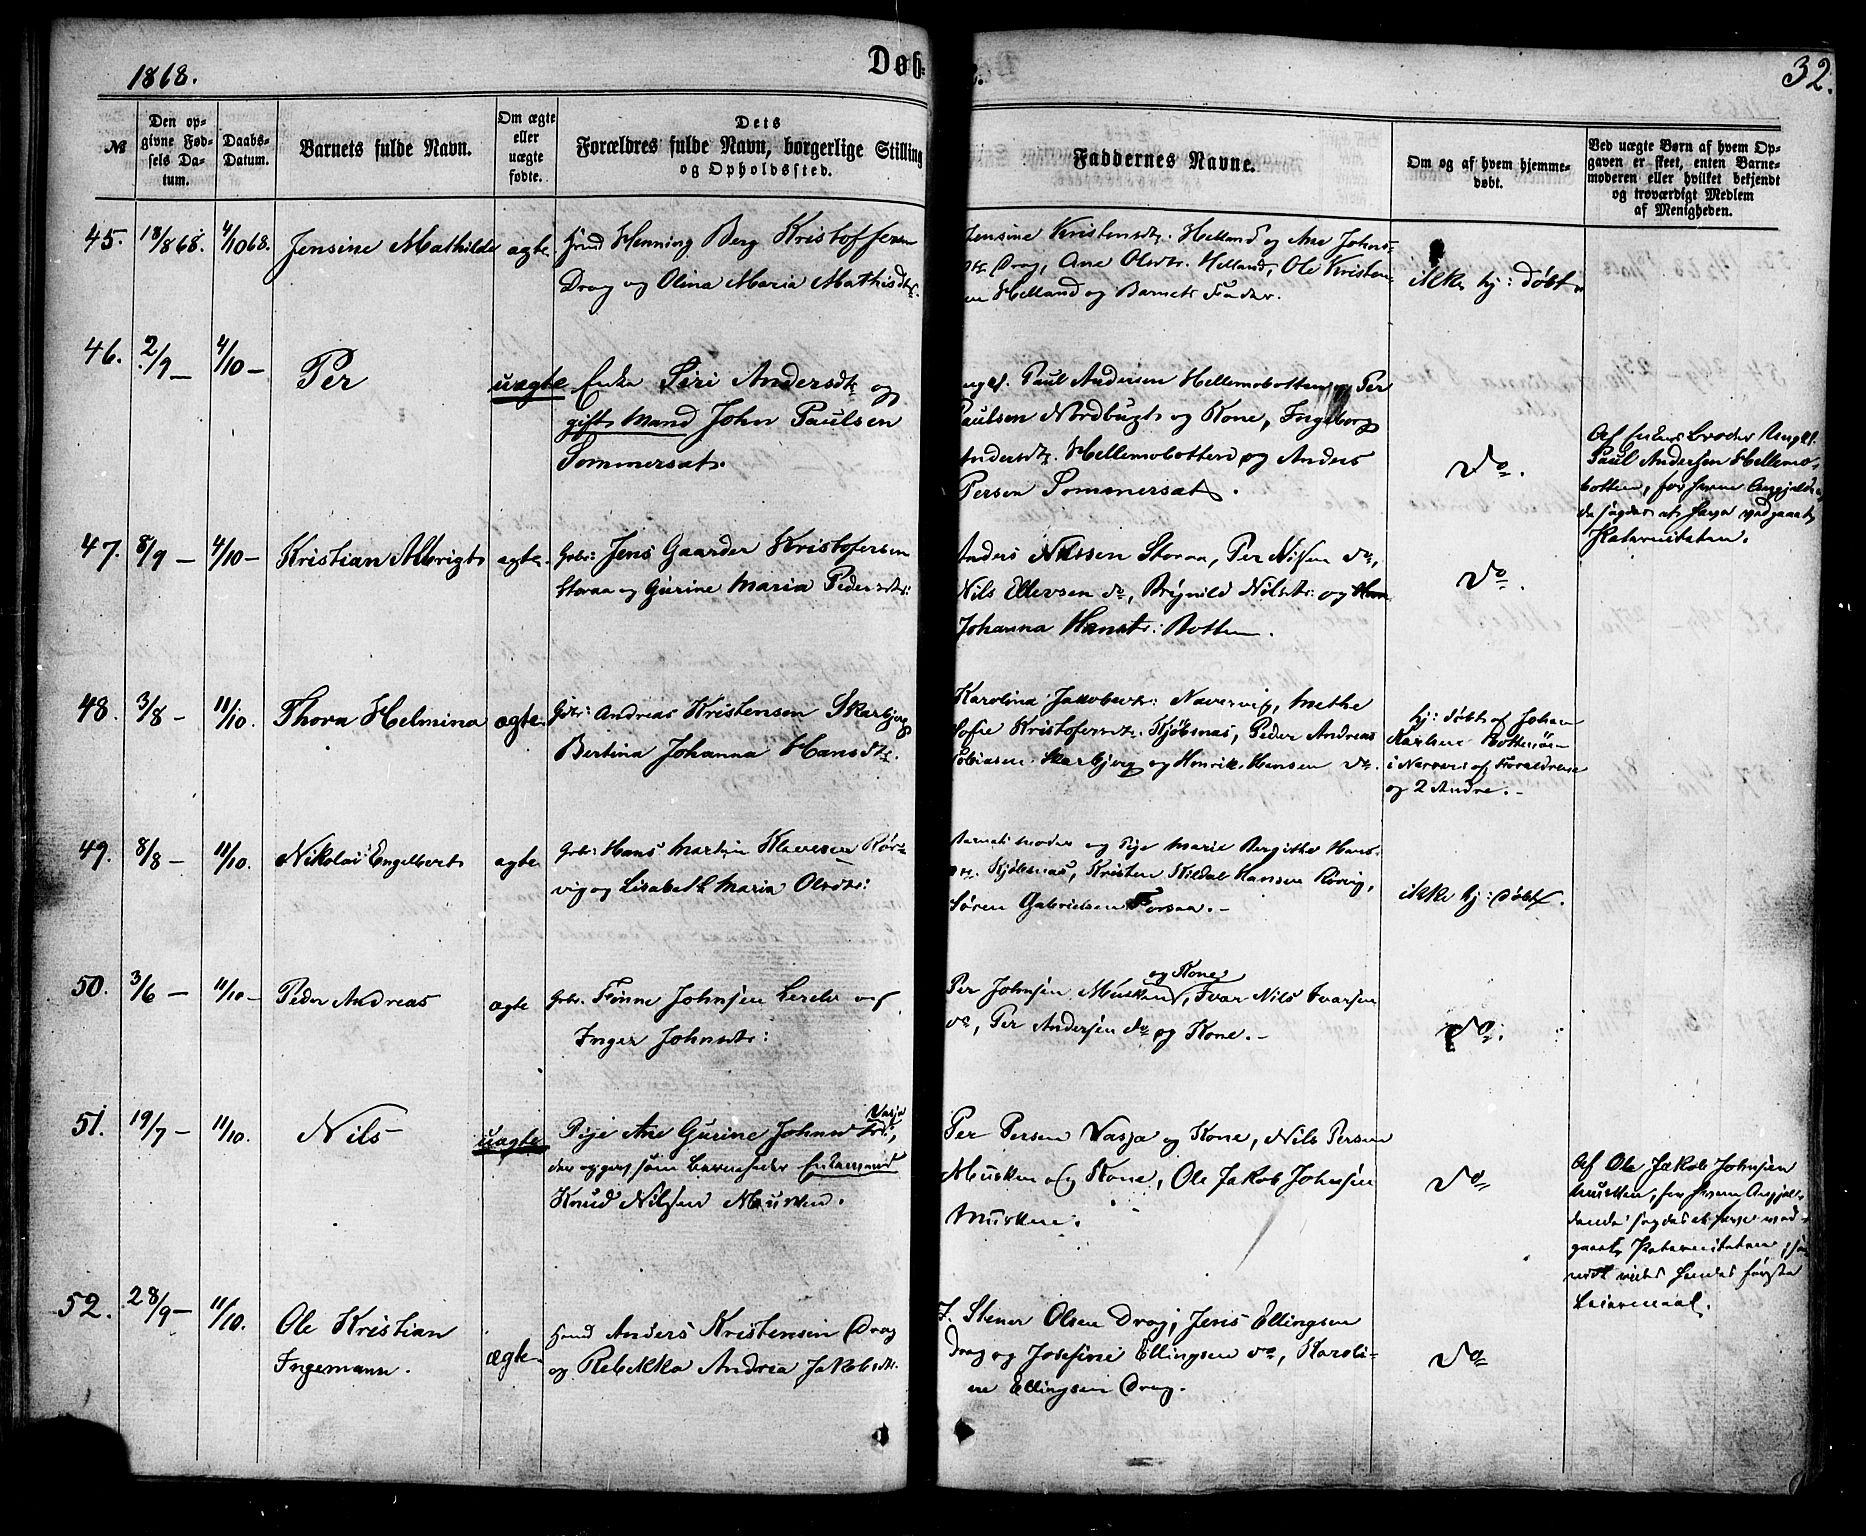 1868.
Døb-
32.
№
Den op-
givne Fød-
sels Da-
tum.
Daabs-
Datum.
Barnets fulde Navn.
Om ægte
eller
uægte
fødte.
Dets
Forældres fulde Navn, borgerlige Stilling
og Opholdssted.
Faddernes Navne.
Om og af hvem hjemme-
døbt.
Ved uægte Børn af hvem Op-
gaven er skeet, enten Barne-
moderen eller hvilket bekjendt
og troværdigt Medlem
af Menigheden.
45. 18/8 68. 4/10 68. Jensine Mathilde ægte
Henning Berg Kristoffersen
Drag og Olina Maria Mathisdtr.
Jensine Kristensdtr. Helland og Ane Johns-
dtr. Drag, Ane Olsdtr. Helland, Ole Kristen-
sen Helland og Barnets Fader.
ikke hj: døbt
46. 2/9 — 4/10 — Per uægte
Enke Siri Andersdtr og
gift Mand John Paulsen
Sommersæt.
ungk. Paul Andersen Hellemobotten og Per
Paulsen Nordbugt og Kone, Ingeborg
Andersdtr. Hellemobotten og Anders
Persen Sommersæt.
do.
Af Enkens Broder Ungk.
Paul Andersen Hellemo-
botten, for hvem Angjelden-
de sagdes at have vedgaaet
Paterniteten.
47. 8/9 — 4/10 — Kristian Albrigt ægte
Grbr: Jens Gaarder Kristofersen
Storaa og Gurine Maria Pedersdtr:
Anders Nilssen Storaa, Per Nilsen do,
Nils Ellevsen do, Brynild Nilsdtr: og
Johanna Hansdtr: Botten.
do.
48. 3/8 — 11/10. Thora Helmina ægte
Andreas Kristensen Skarbjerg
Bertina Johanna Hansdtr.
Karolina Jakobsdtr: Navervig, Methe
Sofie Kristofersdtr. Kjøbsnæs, Peder Andreas
Tobiasen Skarbjerg og Henrik Hansen do.
hj: døbt af Johan
Karlsen
i Nærvær af Forældrene
og 2 Andre. —
49. 8/8 — 11/10. Nikolai Engelbert ægte
Grbr: Hans Martin Klausen Rør-
vig og Lisabeth Maria Olsdtr:
Barnets Moder og Pige Marie Birgitte Hans-
dtr. Kjøbsnæs, Kristen Kildal Hansen Rørvig,
Søren Gabrielsen Forsaa. —
ikke hj: døbt.
50. 3/6 — 11/10 — Peder Andreas ægte
Grbr. Finne Johnsen og
Inger Johnsdtr:
og Kone
Per Johnsen Musken, Ivar Nils Ivarsen
do, Per Andersen do og Kone. —
do.
51. 19/7 — 11/10. Nils uægte
Vasja
Pige Ane Gurine Johnsdtr,
der opgav som Barnefader Enkemand
Knud Nilsen Musken.
Per Persen Vasja og Kone, Nils Persen
Musken og Kone, Ole Jakob Johnsen
Musken.
do
Af Ole Jakob Johnsen
Musken, for hvem Angjel-
dende sagdes at have ved-
gaaet Paterniteten,
hendes første
Leiermaal.
52. 28/9 — 11/10. Ole Kristian
Ingemann. ægte
Anders Kristensen Drag
og Rebekka Andrea Jakobsdtr.
Stener Olsen Drag, Jens Ellingsen
Drag og Josefine Ellingsen do, Karoli-
ne Ellingsen Drag.
do